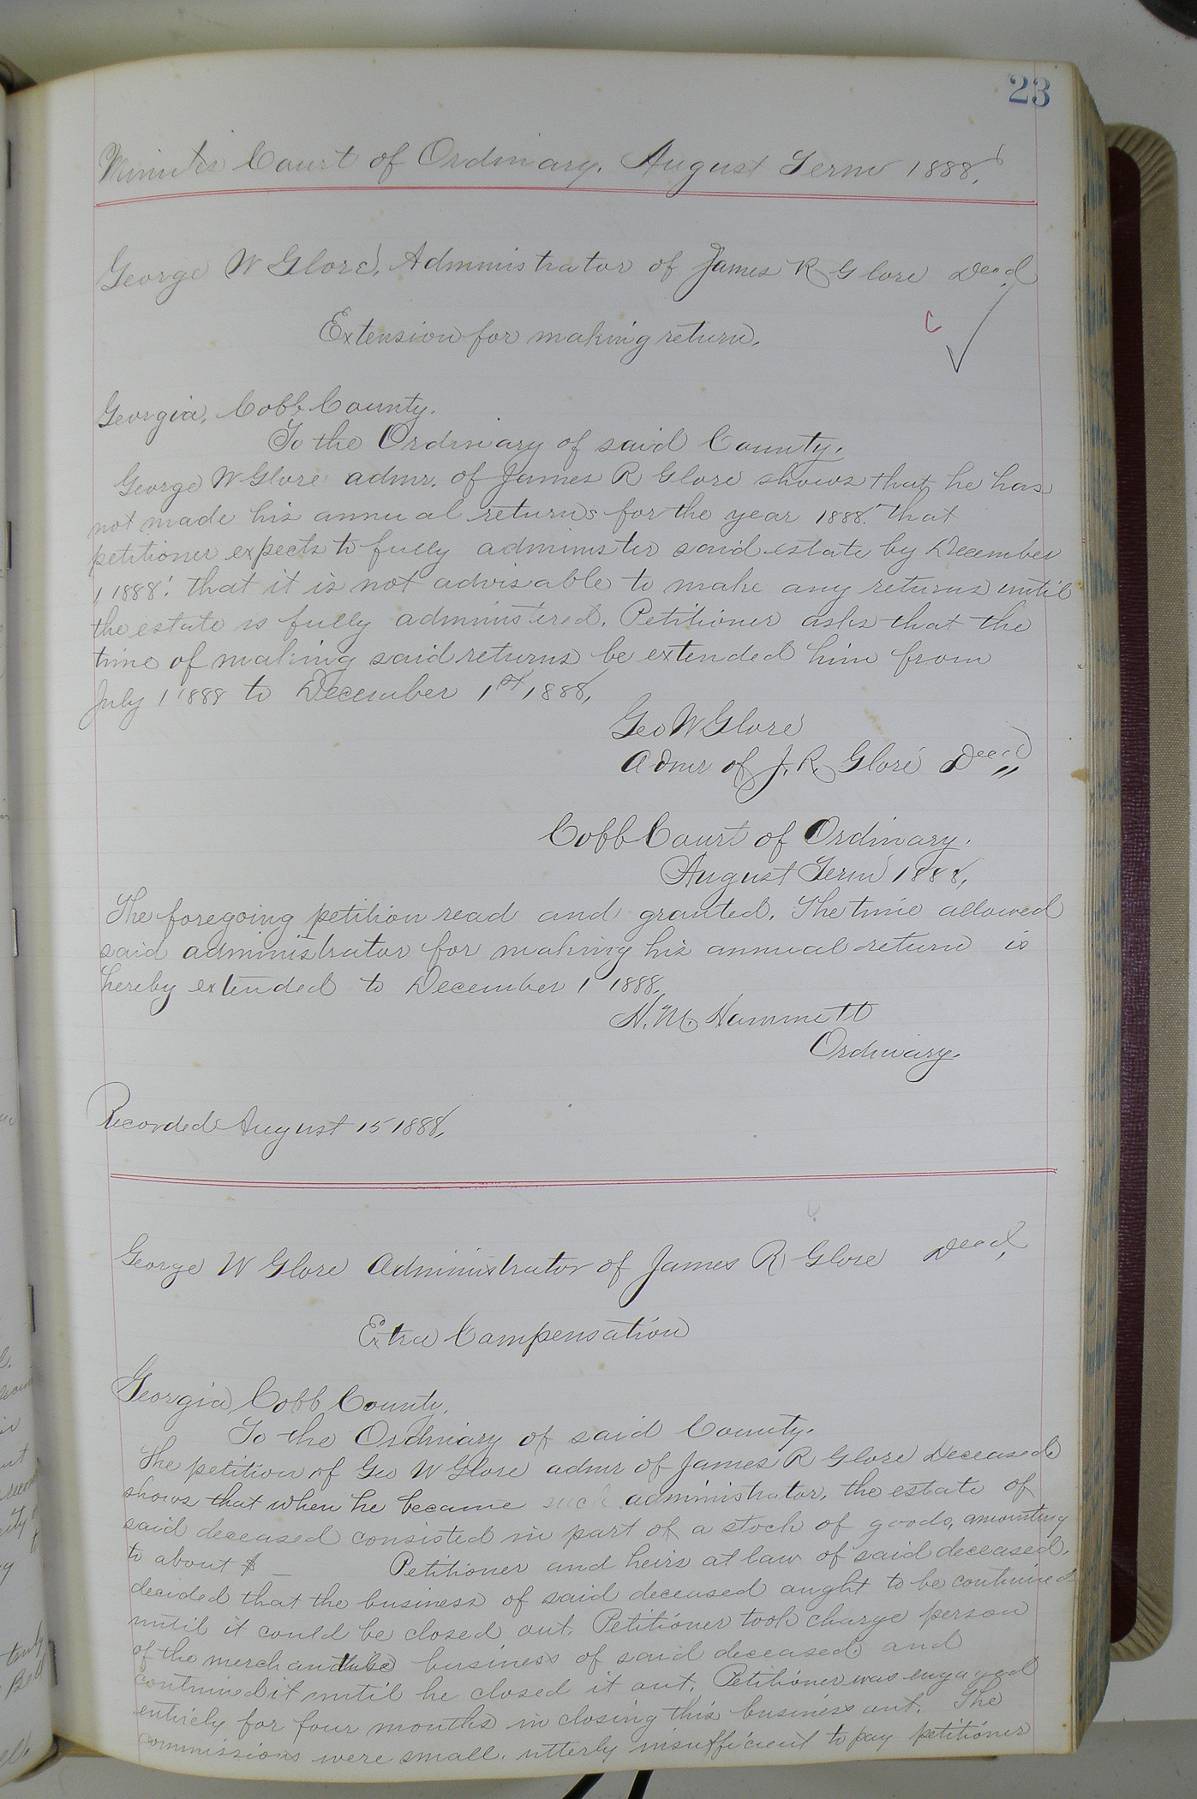 23
Minutes Court of Ordinary. August Term 1888.
George W Glore, Administrator of James R Glore Decd
C
Extension for making return.
Georgia, Cobb County.
To the Ordinary of said County.
George W Glore admr. of James R Glore shows that he has
not made his annual returns for the year 1888. that
petitioner expects to fully administer said estate by December
1 1888. that it is not advisable to make any returns until
the estate is fully administered. Petitioner asks that the
time of making said returns be extended him from
July 1 1888 to December 1st 1888,
Geo W Glore
Admr of J. R. Glore Decd
Cobb Court of Ordinary.
August Term 1888,
The foregoing petition read and granted. The time allowed
said administrator for making his annual return is
hereby extended to December 1 1888.
H. M. Hammett
Ordinary.
Recorded August 15 1888,
George W Glore Administrator of James R Glore Decd,
Extra Compensation
Georgia Cobb County,
To the Ordinary of said County.
The petition of Geo W Glore admr of James R Glore Deceased
shows that when he became such administrator, the estate of
said deceased consisted in part of a stock of goods, amounting
to about $ Petitioner and heirs at law of said deceased,
decided that the business of said deceased aught to be continued
until it could be closed out. Petitioner took charge person
of the merchandise business of said deceased and
continued it until he closed it out. Petitioner was engaged
entirely for four months in closing this business out. The
commissions were small, utterly insufficient to pay petitioner